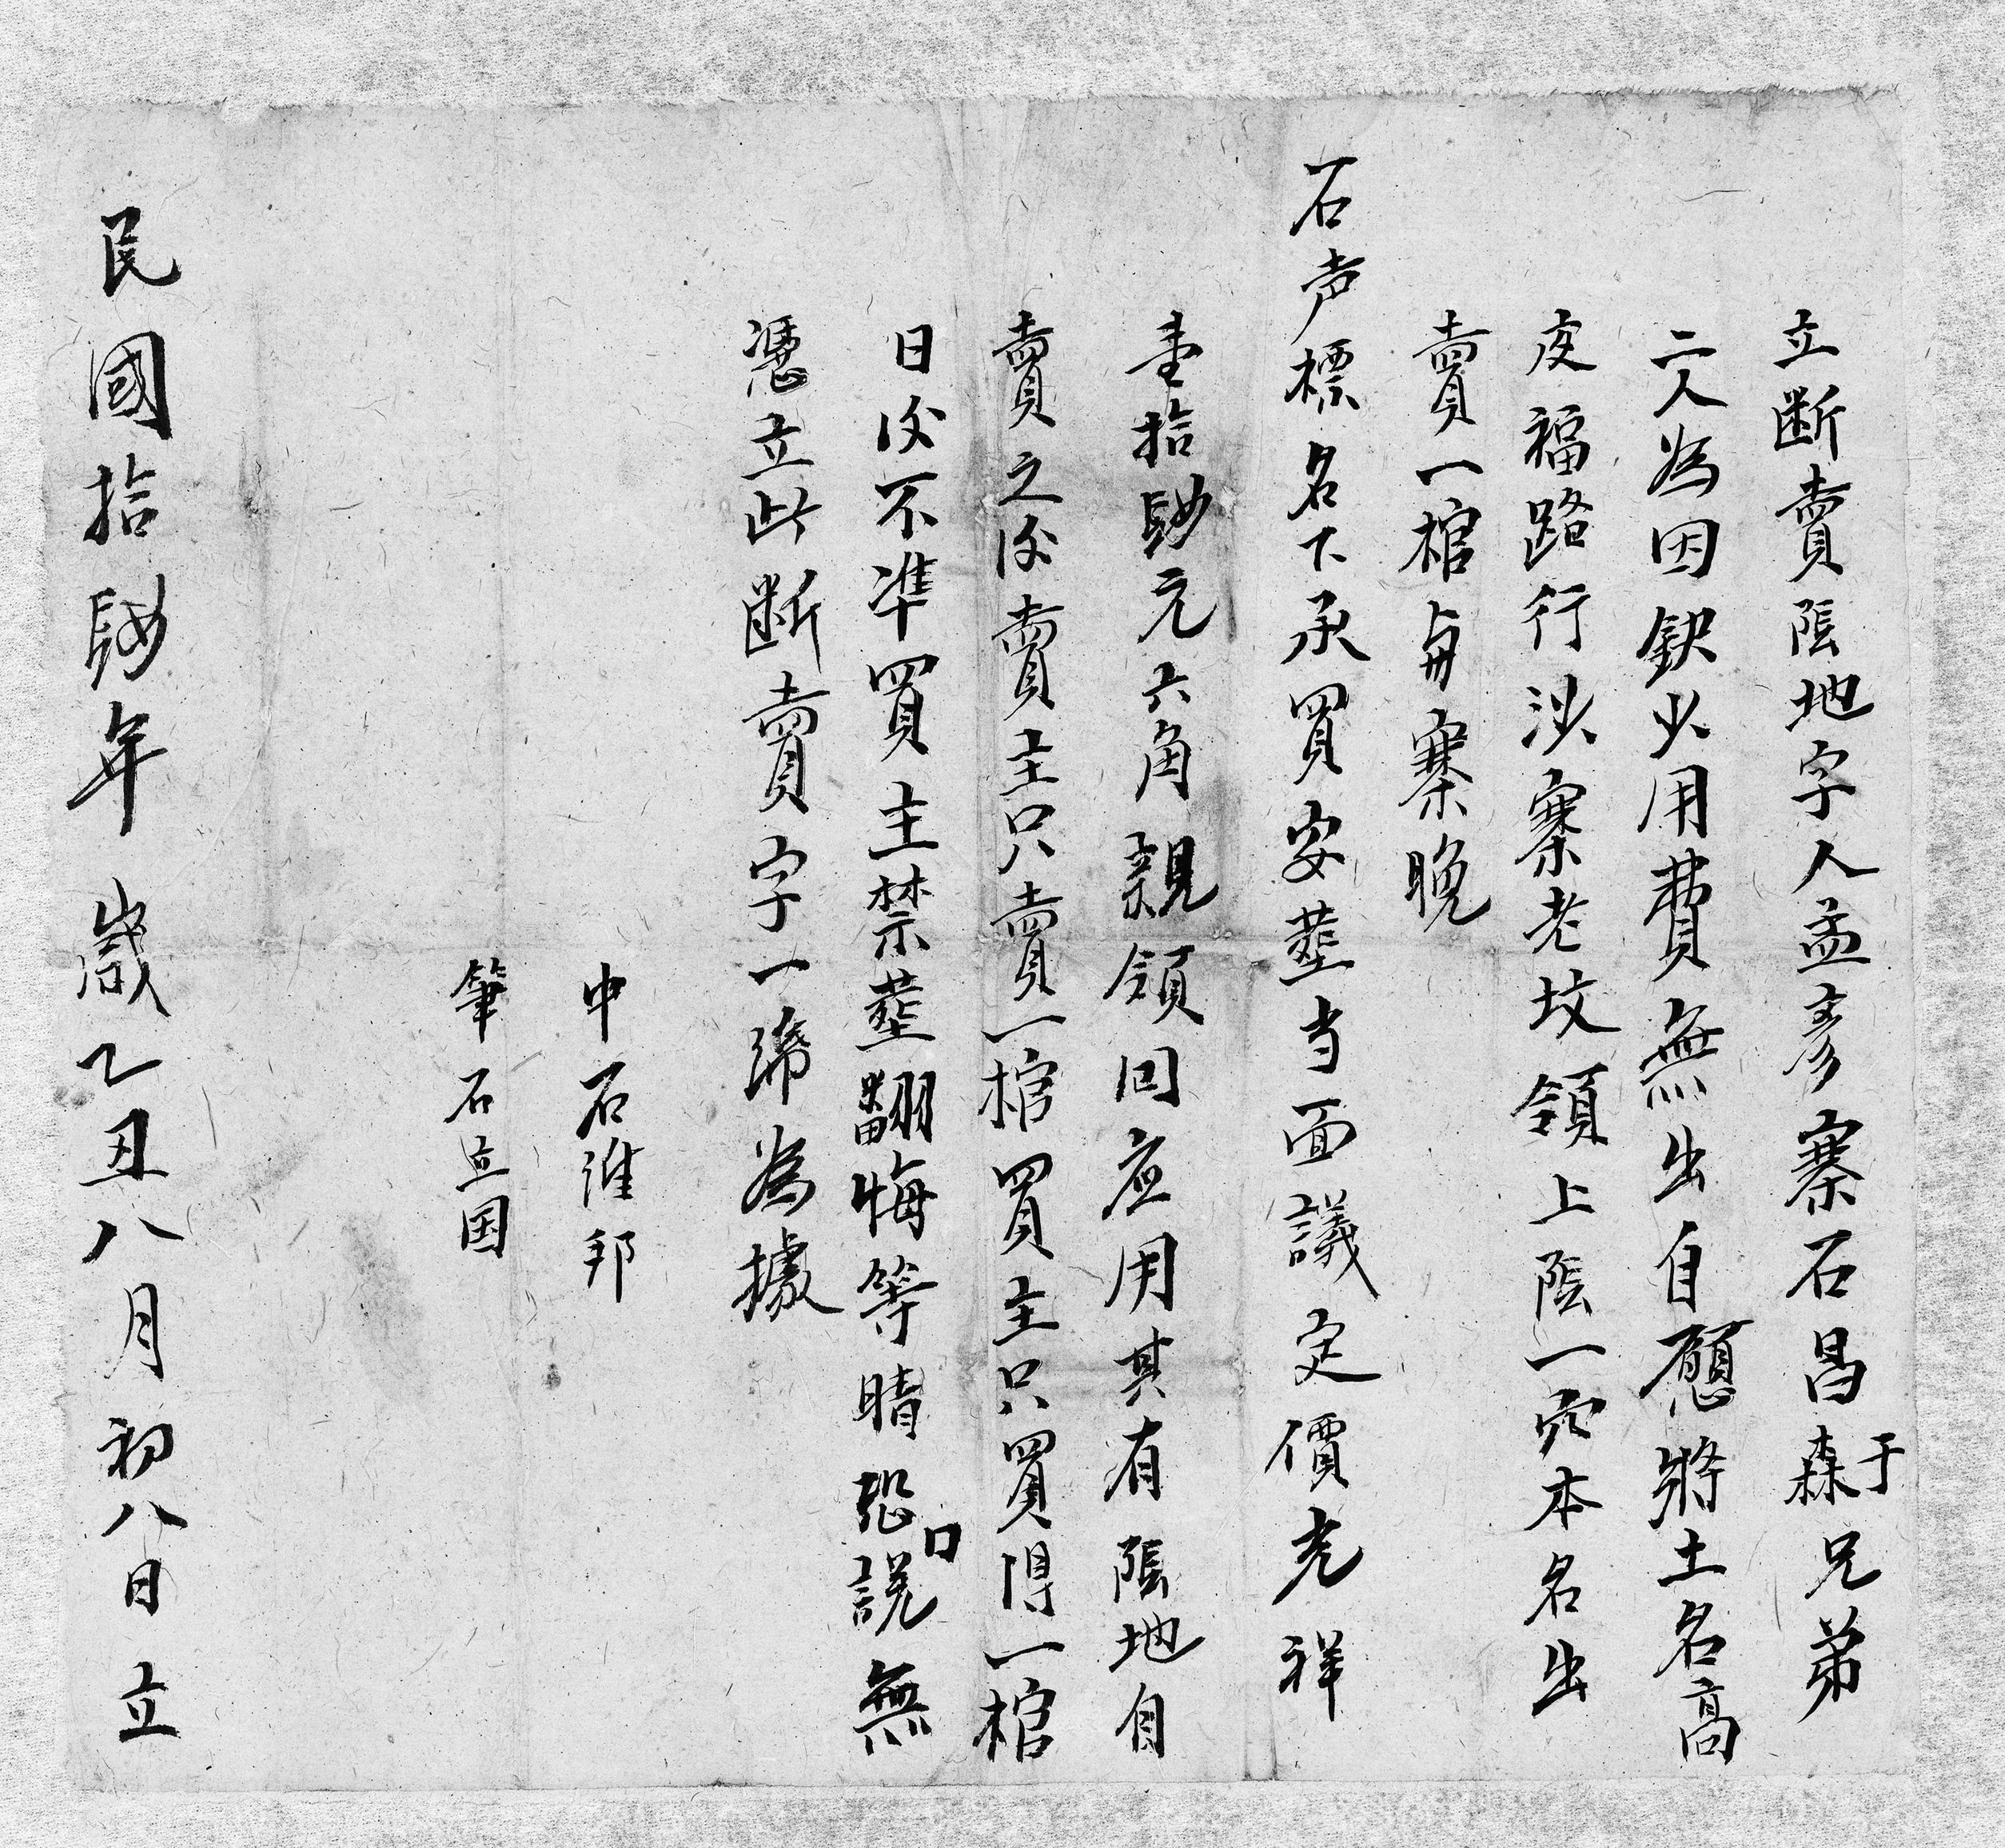 立断賣陰地字人孟彥寨石昌森于兄弟
二人為因缺少用費無出自願將土名高
皮福路行沙寨老坟領上陰一穴本名出
賣一棺與寨晚
石声標名下承買安塟当面議定價光祥
壹拾肆元六角親領回应用其有陰地自
賣之後賣主只賣一棺買主只買得一棺
日後不準買主禁塟翻悔等晴恐口説無
憑立此断賣字一㷌為據
中石維邦
筆石立国
民國拾肆年歲乙丑八月初八日立